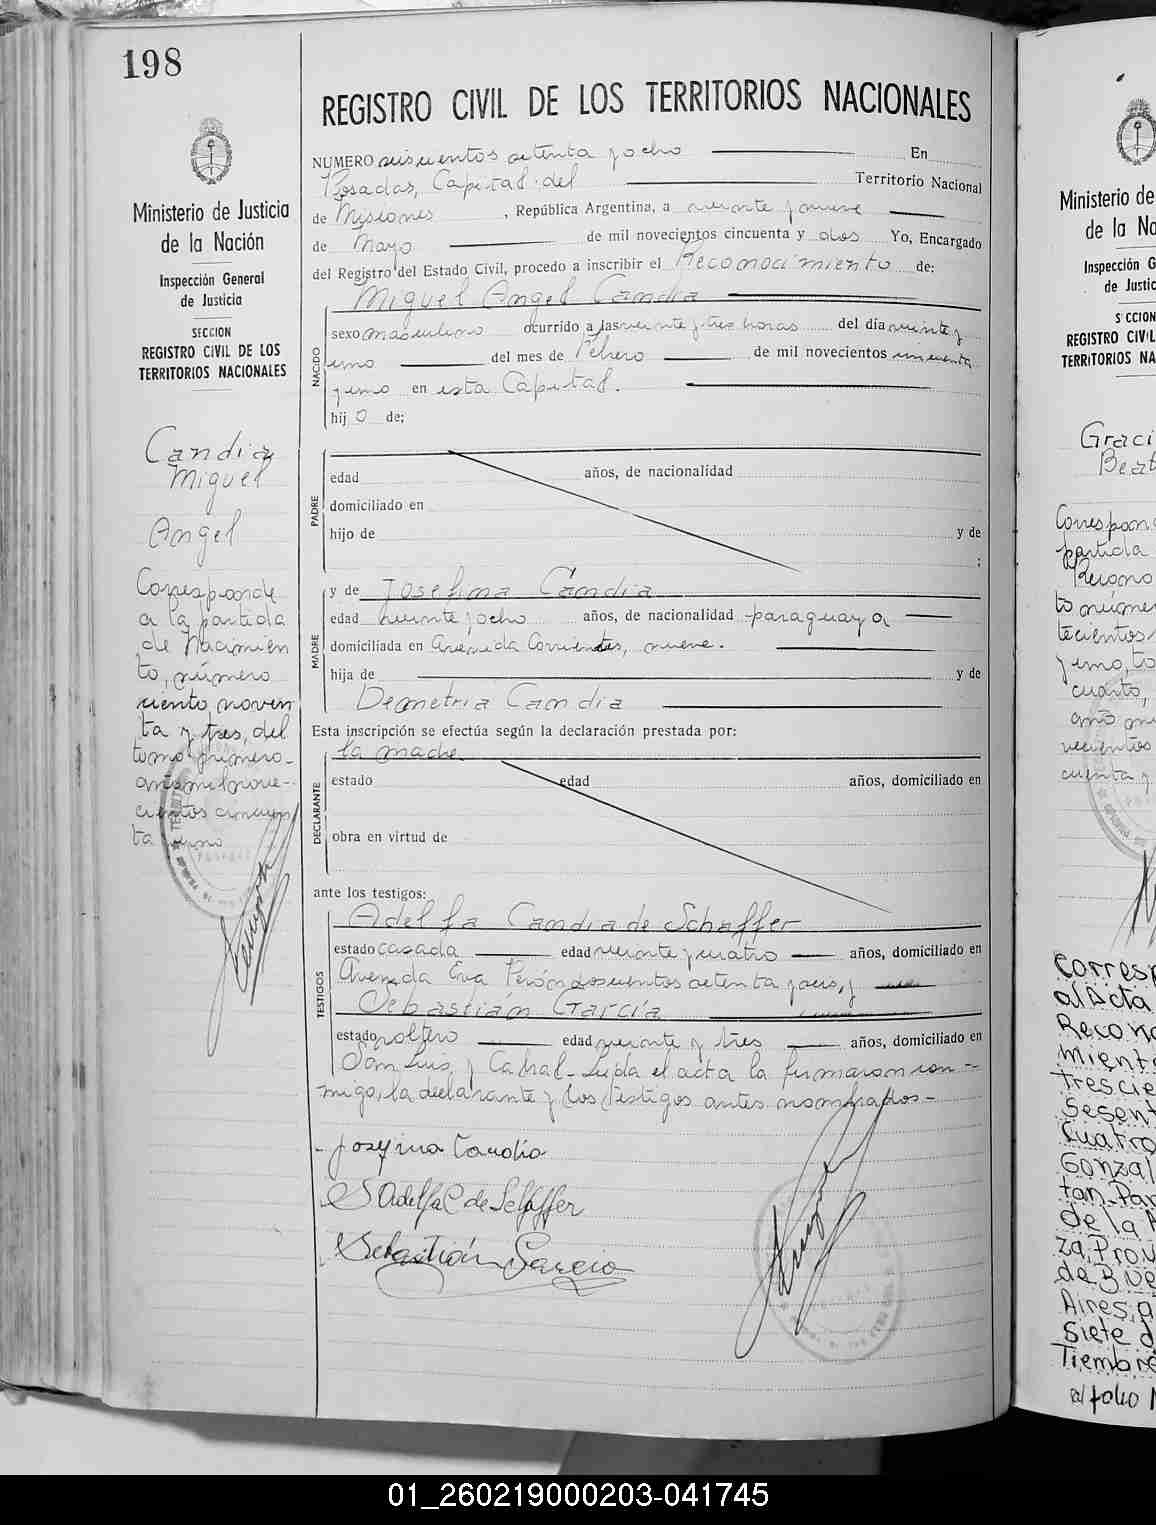 198
REGISTRO CIVIL DE LOS TERRITORIOS NACIONALES
Ministerio de Justicia
de la Nación
Inspección General
de Justicia
SECCION
REGISTRO CIVIL DE LOS
TERRITORIOS NACIONALES
Candia
Miguel
Angel
Corresponde
a la partida
de Nacimien
to, número
ciento, noven
ta y tres, del
tomo primero
año mil nove-
cientos cincuen
ta y uno
NUMERO seiscientos setenta y ocho En
Posadas, Capital del Territorio Nacional
de Misiones, República Argentina, a veinte y nueve
de Mayo de mil novecientos cincuenta y dos Yo, Encargado
del Registro del Estado Civil, procedo a inscribir el Reconocimiento de:
Miguel Angel Candia
NACIDO
sexo masculino ocurrido a las veinte y tres horas del día veinte y
uno del mes de Febrero de mil novecientos cincuenta
y uno en esta Capital.
hij o de:
PADRE
edad años, de nacionalidad
domiciliado en
hijo de y de
;
MADRE
y de Josefina Candia
edad veinte y ocho años, de nacionalidad paraguaya
domiciliada en Avenida Corrientes, nueve.
hija de y de
Demetria Candia
Esta inscripción se efectúa según la declaración prestada por:
DECLARANTE
la madre
estado edad años, domiciliado en
obra en virtud de
ante los testigos:
TESTIGOS
Adelfa Candia de Schaffer
estado casada edad veinte y cuatro años, domiciliado en
Avenida Eva Perón doscientos setenta y seis, y
Sebastián García
estado soltero edad veinte y tres años, domiciliado en
San Luis y Cabral. Leída el acta la firmaron con-
migo, la declarante y los testigos antes nombrados-
Josefina Candia
Adelfa C de Schaffer
Sebastián García
Ministerio de
de la Na
Inspección G
de Justic
SECCION
REGISTRO CIVIL
TERRITORIOS NA
Graci
Beat
Correspon
partida
Recono
to núme
tecientos
y uno, to
cuarto,
año mi
vecientos
cuenta y
Corresp
al Acta
Recono
mient
Tresci
Sesent
Cuatro
Gonzal
tan-Par
de la
za, Prov
de Bue
Aires, a
Siete d
Tiembre
al folio
01_260219000203-041745